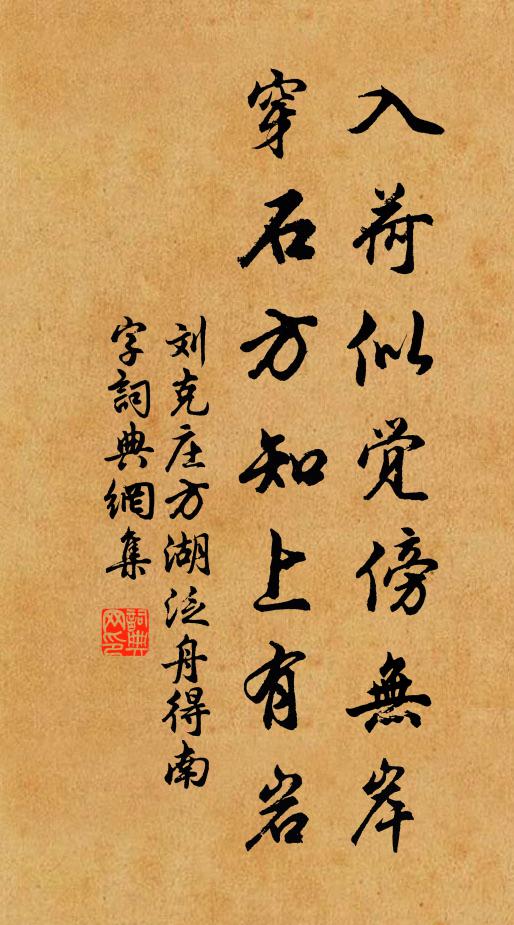 入荷似觉傍無岸
穿石方知上有岩
刘克庄方湖泛舟得南
字詞典網集
詞典
网印